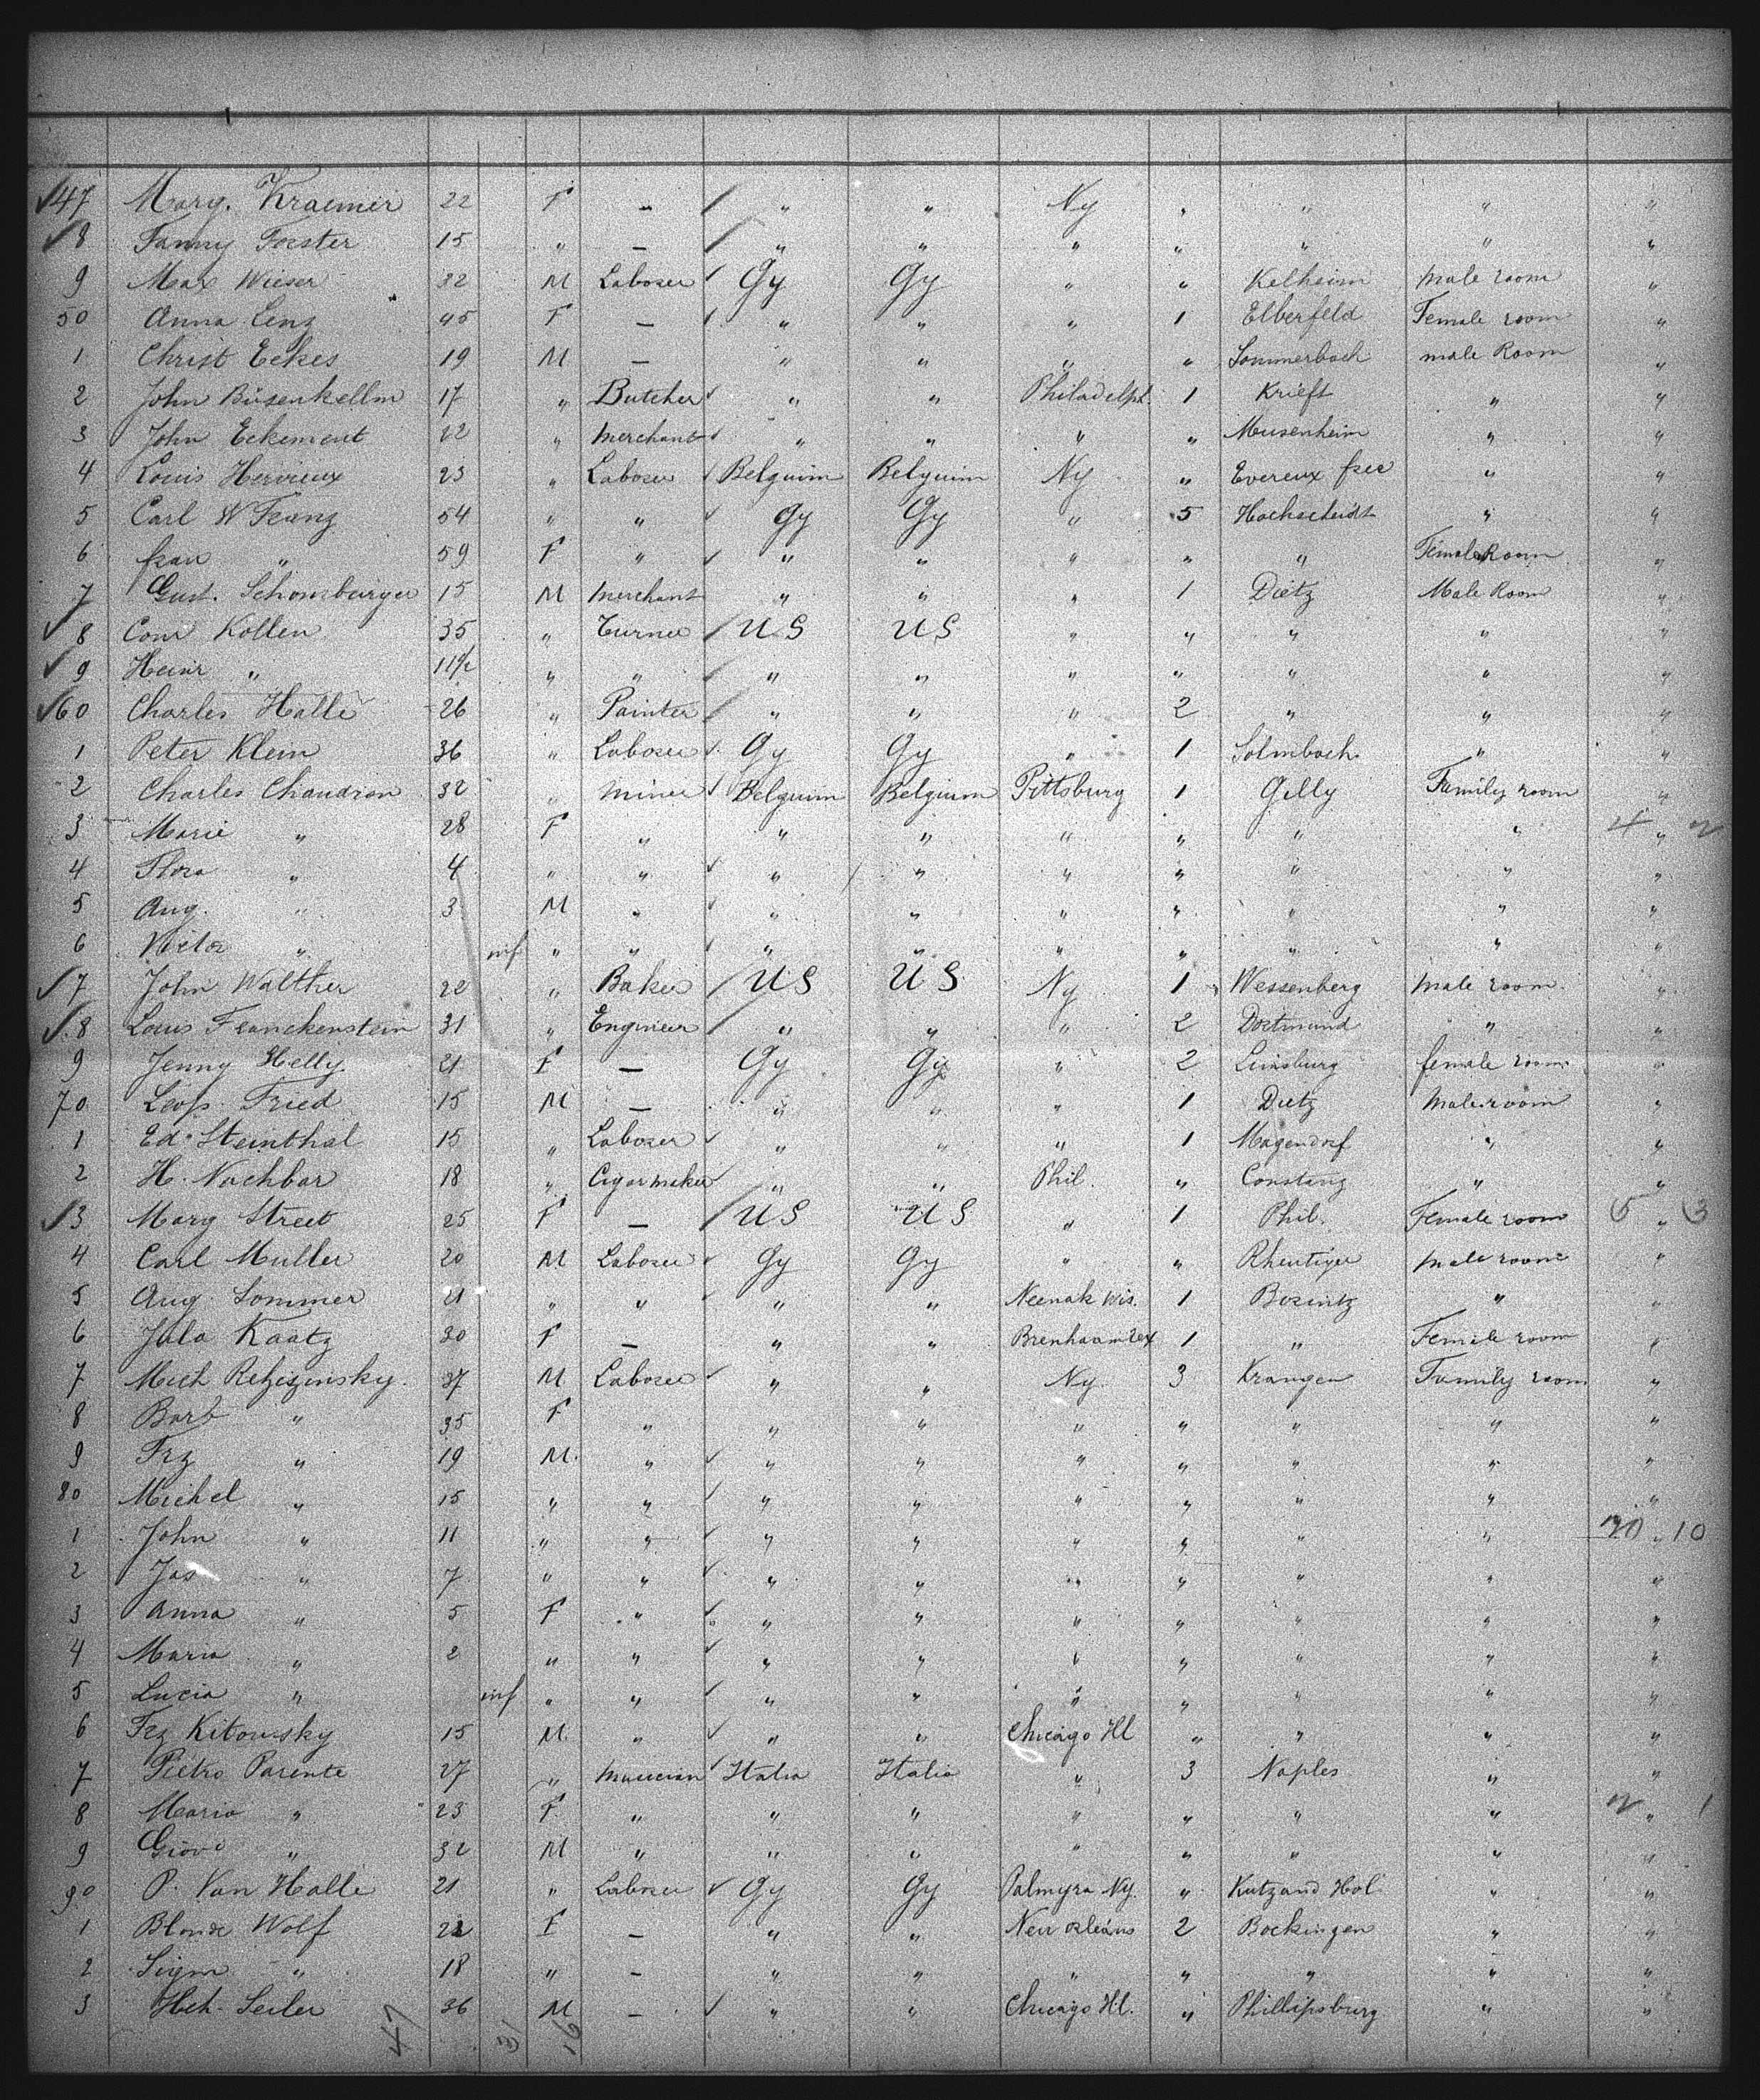 47 Mary. Kraemer 22 F — " " Ny " " " "
8 Fanny Forster 15 " — " " " " " " "
9 Max Wieser 32 M Laborer Gy Gy " " Kelheim male room "
50 Anna Lenz 45 F — " " " 1 Elberfeld Female room "
1 Christ Eckes 19 M — " " " " Sommerbach male Room "
2 John Büsenkellm 17 " Butcher " " Philadelph. 1 Krieft " "
3 John Eckement 22 " Merchant " " " " Meisenheim " "
4 Louis Hervieux 23 " Laborer Belguim Belguim Ny " Evereux " "
5 Carl W Franz 54 " " Gy Gy " 5 Hochscheidt " "
6 frau " 59 F " " " " " " Female Room "
7 Gust. Schonzburger 15 M Merchant " " " 1 Dietz Male Room "
8 Conr Kollen 35 " Turner U S U S " " " " "
9 Heinr " 11½ " " " " " " " " "
60 Charles Halle 26 " Painter " " " 2 " " "
1 Peter Klein 36 " Laborer Gy Gy " 1 Solmbach " "
2 Charles Chaudron 32 " Miner Belguim Belgium Pittsburg 1 Gilly Family room "
3 Marie " 28 F " " " " " " " 4 " 2
4 Flora " 4 " " " " " " " " "
5 Aug. " 3 M " " " " " " " "
6 " inf " " " " " " " " "
7 John Walther 22 " Baker U S U S Ny 1 Wessenberg male room "
8 Louis Franckenstein 31 " Engineer " " " 2 Dortmund " "
9 Jenny Helly 21 F — Gy Gy " 2 Linsburg female room "
70 Leop. Fried 15 M — " " " 1 Dietz Male room "
1 Ed. Steinthal 15 " Laborer " " " 1 Magendorf " "
2 H. Nachbar 18 " Cigarmaker " " Phil. " Constanz " "
3 Mary Street 25 F — U S U S " 1 Phil. Female room 5 " 3
4 Carl Muller 20 M Laborer Gy Gy " " Rheutiger male room "
5 Aug. Sommer 21 " " " " Neenak Wis. 1 Bosintz " "
6 Jula Kaatz 30 F — " " Brenhaam Tex 1 " Female room "
7 Mich Retzizinsky 37 M Laborer " " Ny. 3 Krangen Family room "
8 Barb " 35 F " " " " " " " "
9 Frz " 19 M. " " " " " " " "
80 Michel " 15 " " " " " " " " "
1 John " 11 " " " " " " " " 20 " 10
2 Jos " 7 " " " " " " " " "
3 Anna " 5 F " " " " " " " "
4 Maria " 2 " " " " " " " " "
5 Lucia " inf " " " " " " " " "
6 Frz Kitowsky 15 M. " " " Chicago Ill " " " "
7 Pietro Parente 27 " Musician Italia Italia " 3 Naples " "
8 Maria " 23 F " " " " " " " 2 " 1
9 Giovi " 32 M " " " " " " " "
90 P. Van Halle 21 " Laborer Gy Gy Palmyra Ny. " Kutzand Hol " "
1 Blonde Wolf 22 F — " " New Orleans 2 Bockingen " "
2 Sigm " 18 " — " " " " " " "
3 Hch. Seiler 36 M — " " Chicago Ill. " Phillipsburg " "
47 31 16